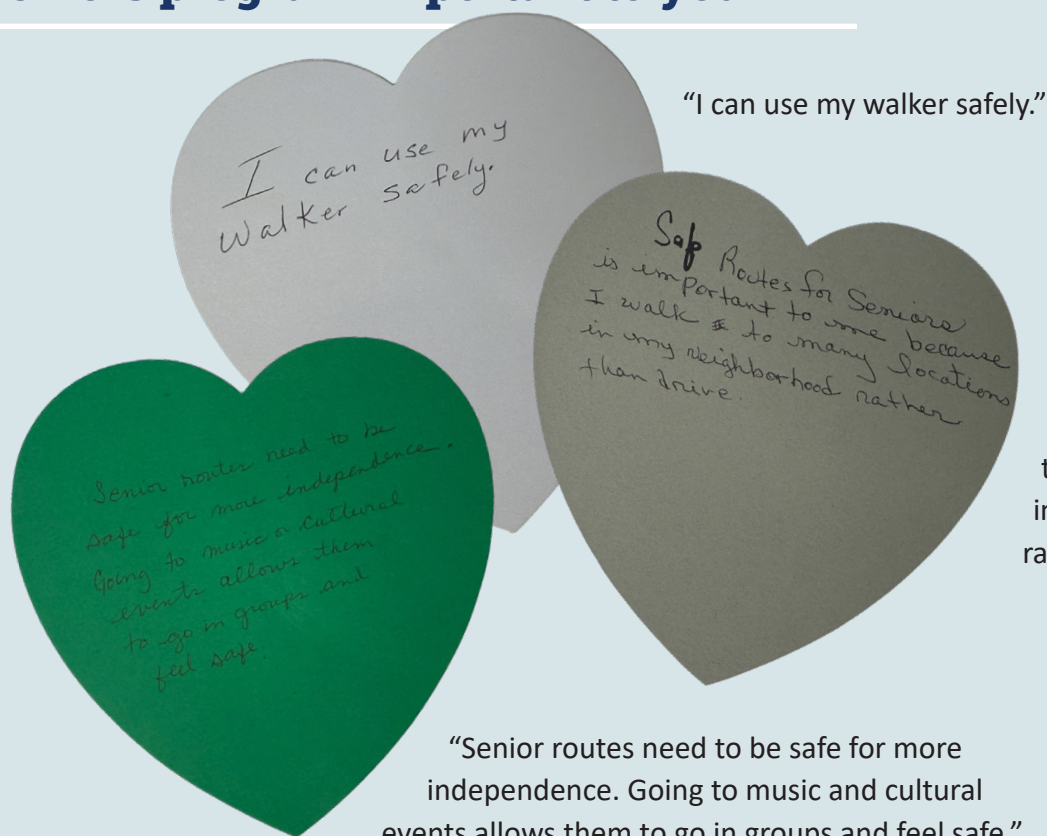 program important to you
“I can use my walker safely.”
I can use my
Walker safely.
Safe Routes for Seniors
is important to me because
I walk to many locations
in my neighborhood rather
than drive.
Senior routes need to be
safe for more independence.
Going to music or cultural
events allows them
to go in groups and
feel safe.
“Senior routes need to be safe for more
independence. Going to music and cultural
events allows them to go in groups and feel safe.”